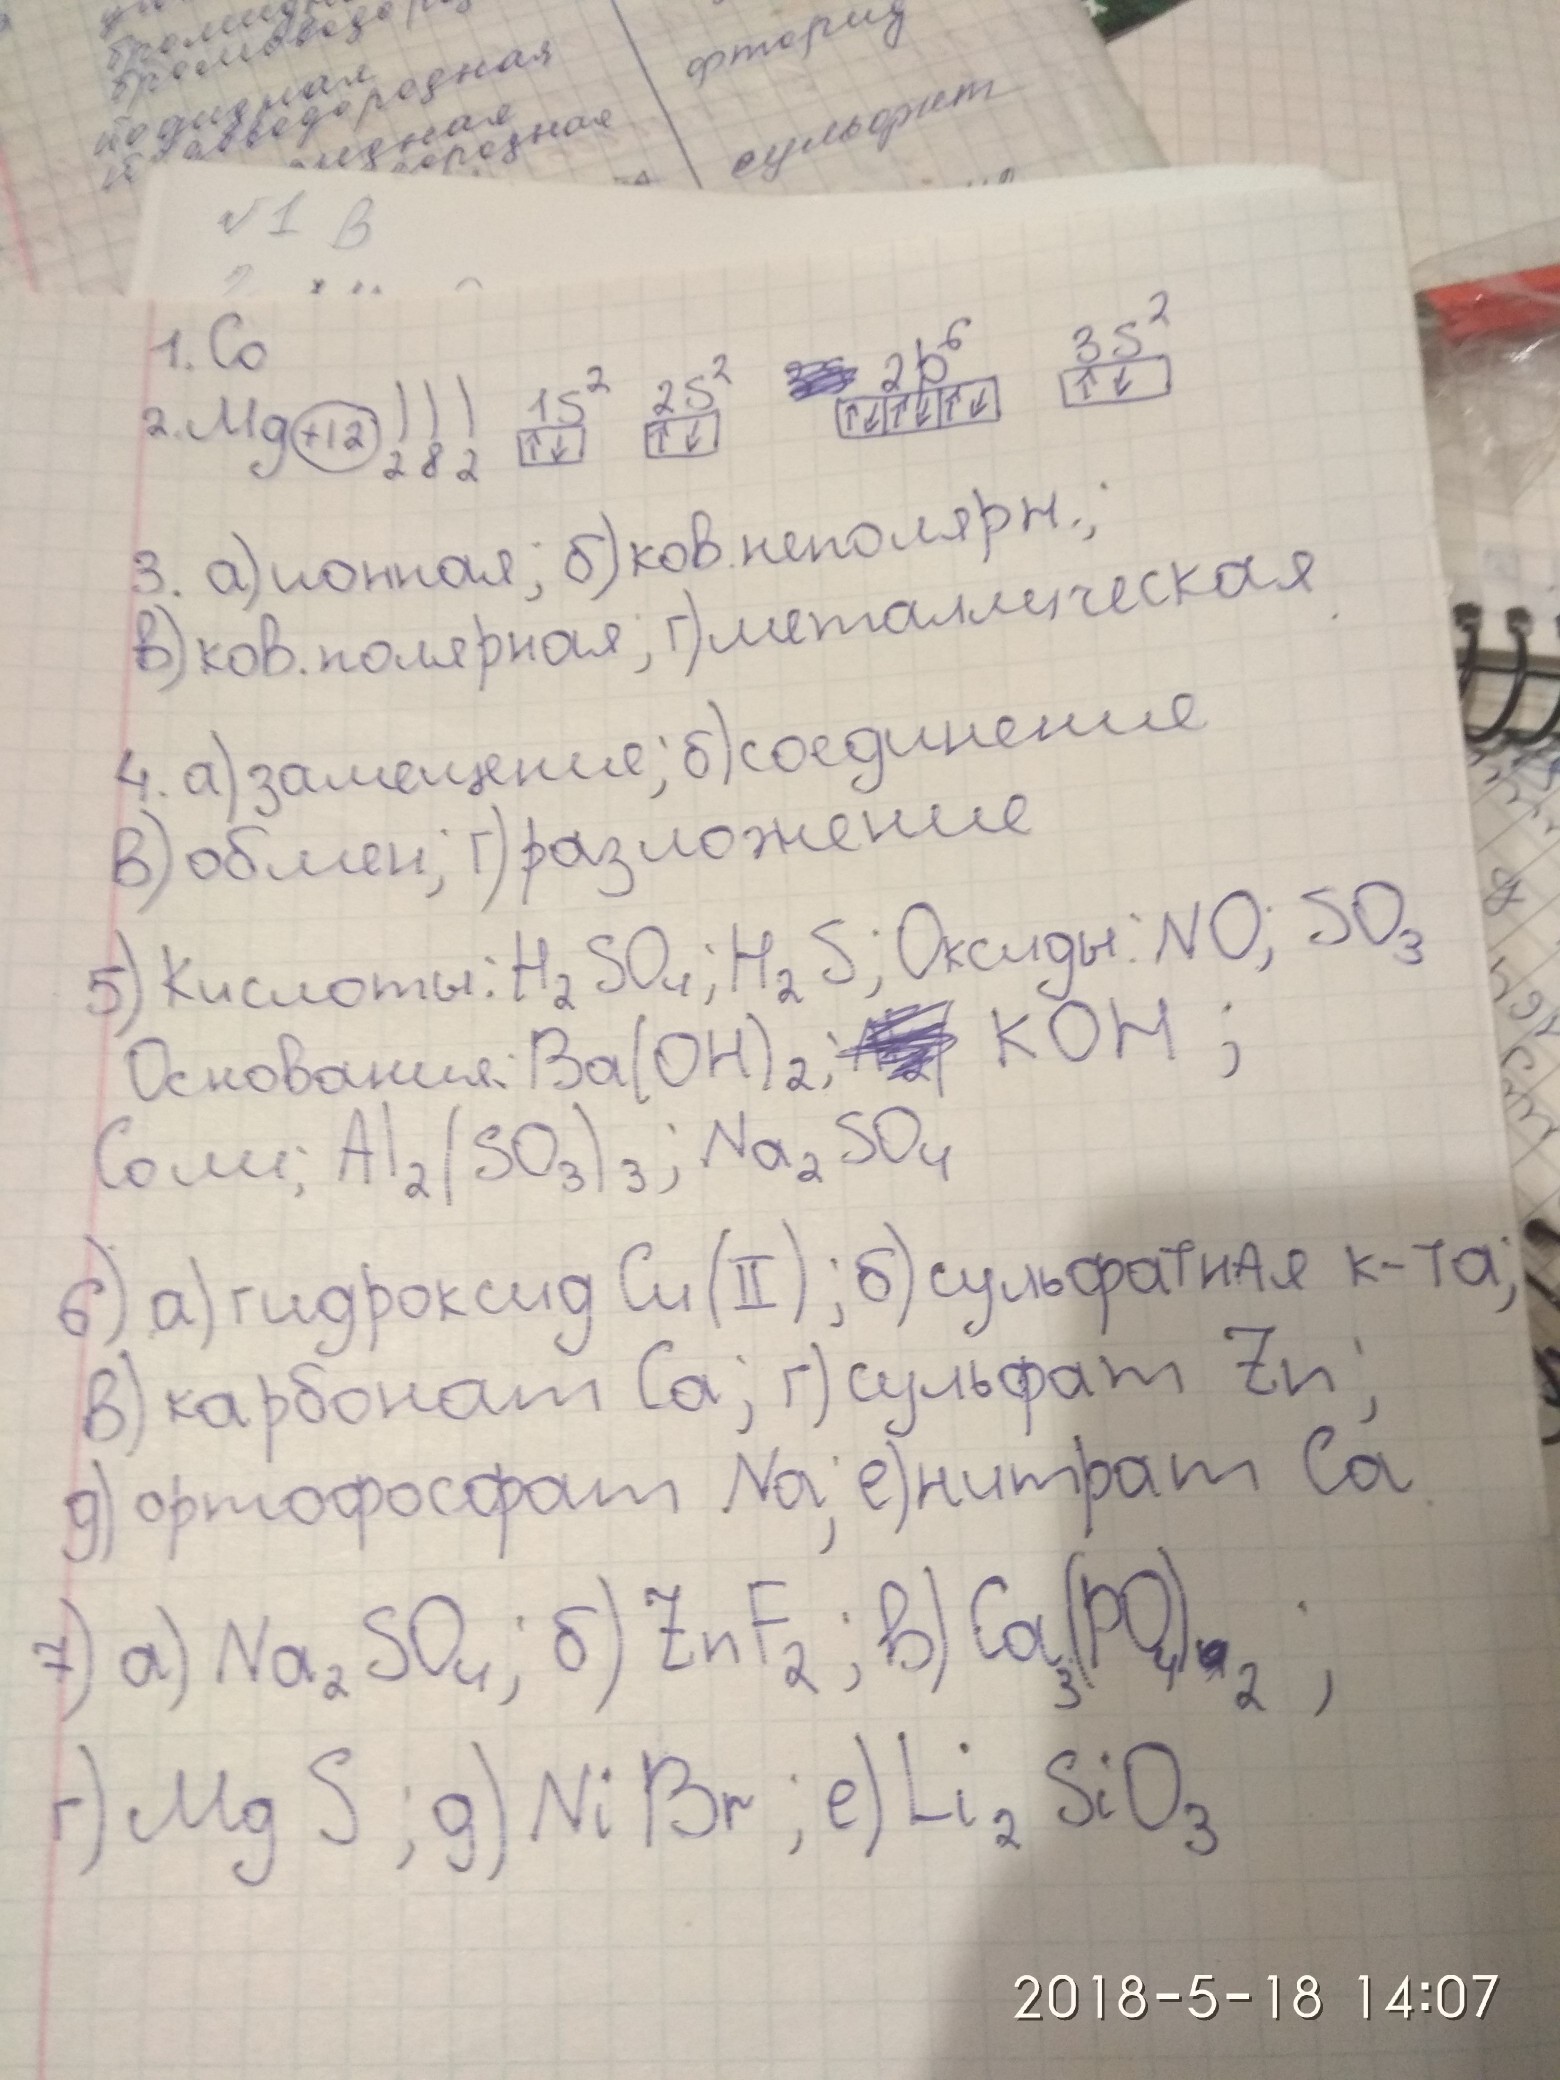 фторид
сульфит
иодидная
№1 В
1. Co
2. Mg +12 ) ) ) 1S² 2S² 2p⁶ 3S²
2 8 2 ↑↓ ↑↓ ↑↓ ↑↓ ↑↓ ↑↓
3. а) ионная; б) ков. неполярн.;
в) ков. полярная; г) металлическая
4. а) замещение; б) соединение
в) обмен; г) разложение
5) Кислоты: H₂SO₄; H₂S; Оксиды: NO; SO₃
Основания: Ba(OH)₂; KOH ;
Соли; Al₂(SO₃)₃; Na₂SO₄
6) а) гидроксид Cu (II); б) сульфатная к-та;
в) карбонат Ca; г) сульфат Zn;
д) ортофосфат Na; е) нитрат Ca
7) а) Na₂SO₄; б) ZnF₂; в) Ca₃(PO₄)₂ ;
г) MgS; д) NiBr; е) Li₂SiO₃
2018-5-18 14:07